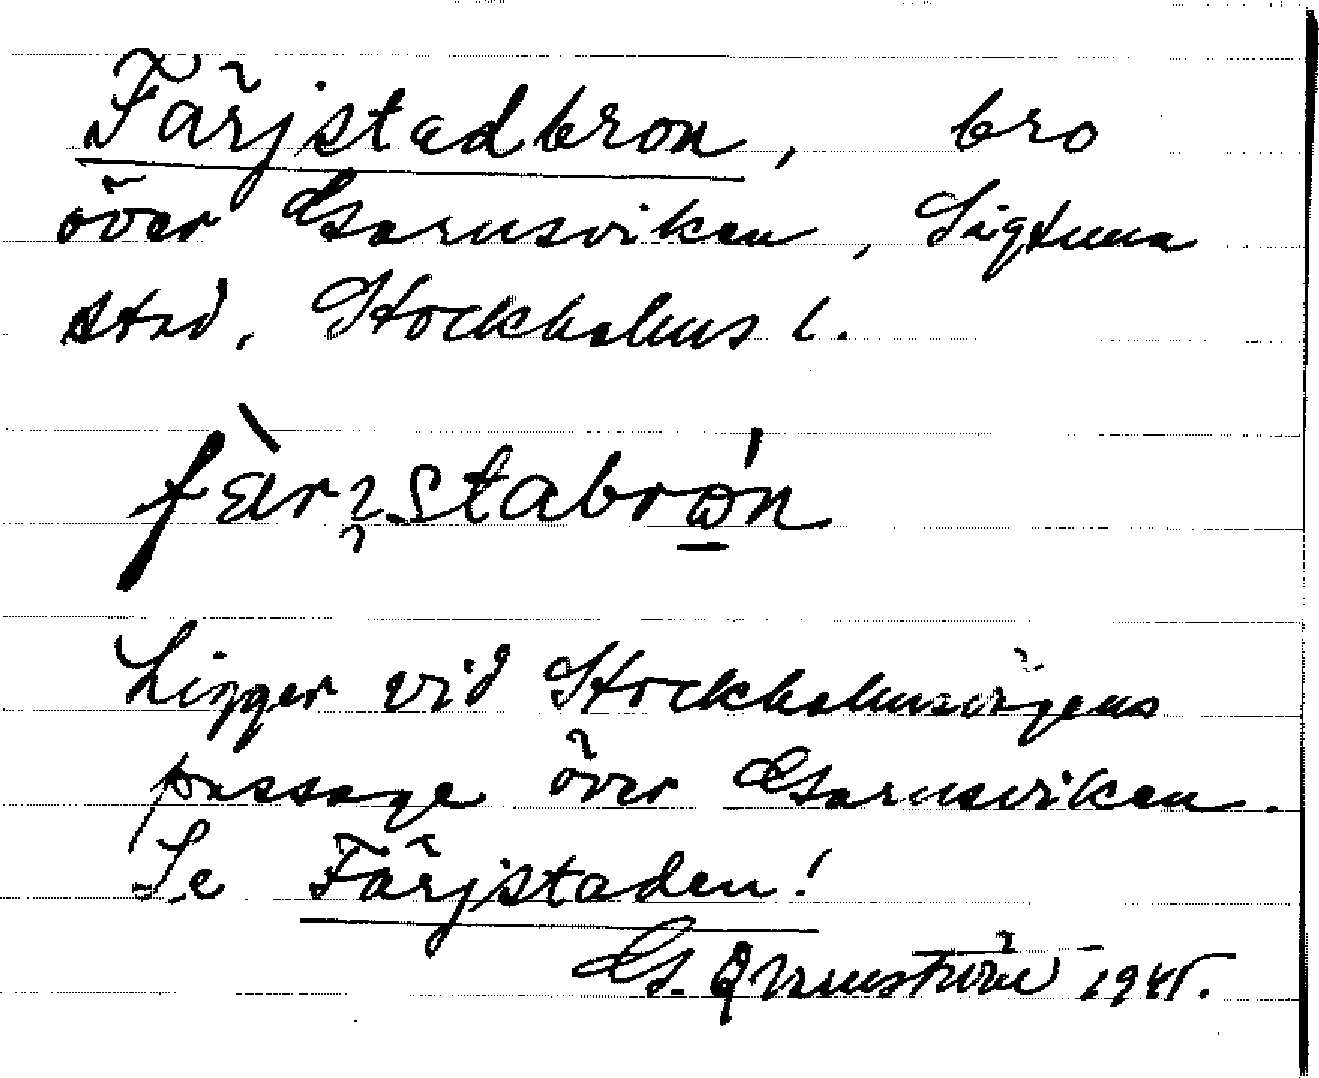 Färjstadbron, bro
över Garnsviken, Sigtuna
stad, Stockholms l.
Ligger vid Stockholmsvägens
passage över Garnsviken.
Se Färjstaden!
G. 1945.